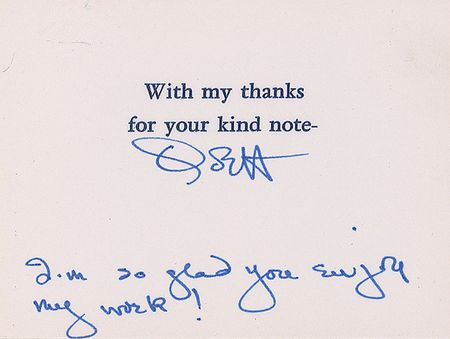 With my thanks
for your kind note-
I'm so glad you enjoy
my work!